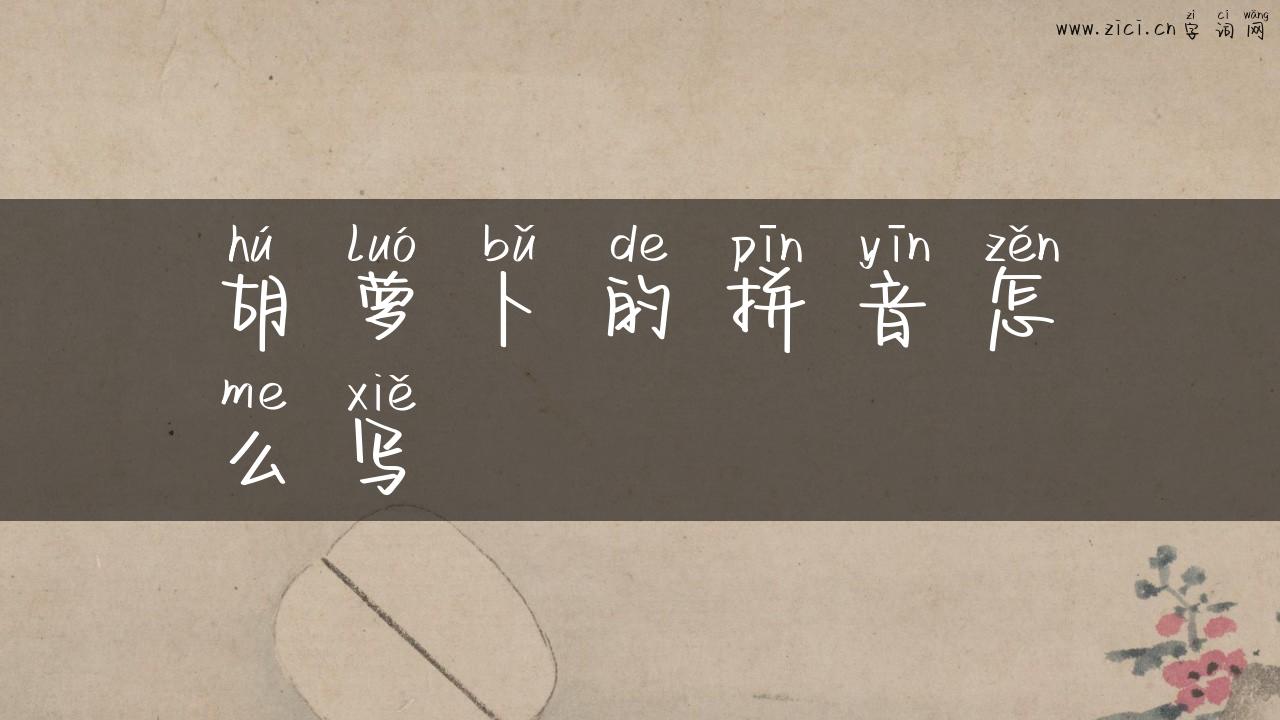 zì cí wǎng
www.zici.cn 字 词 网
hú luó bǔ de pīn yīn zěn
胡 萝 卜 的 拼 音 怎
me xiě
么 写